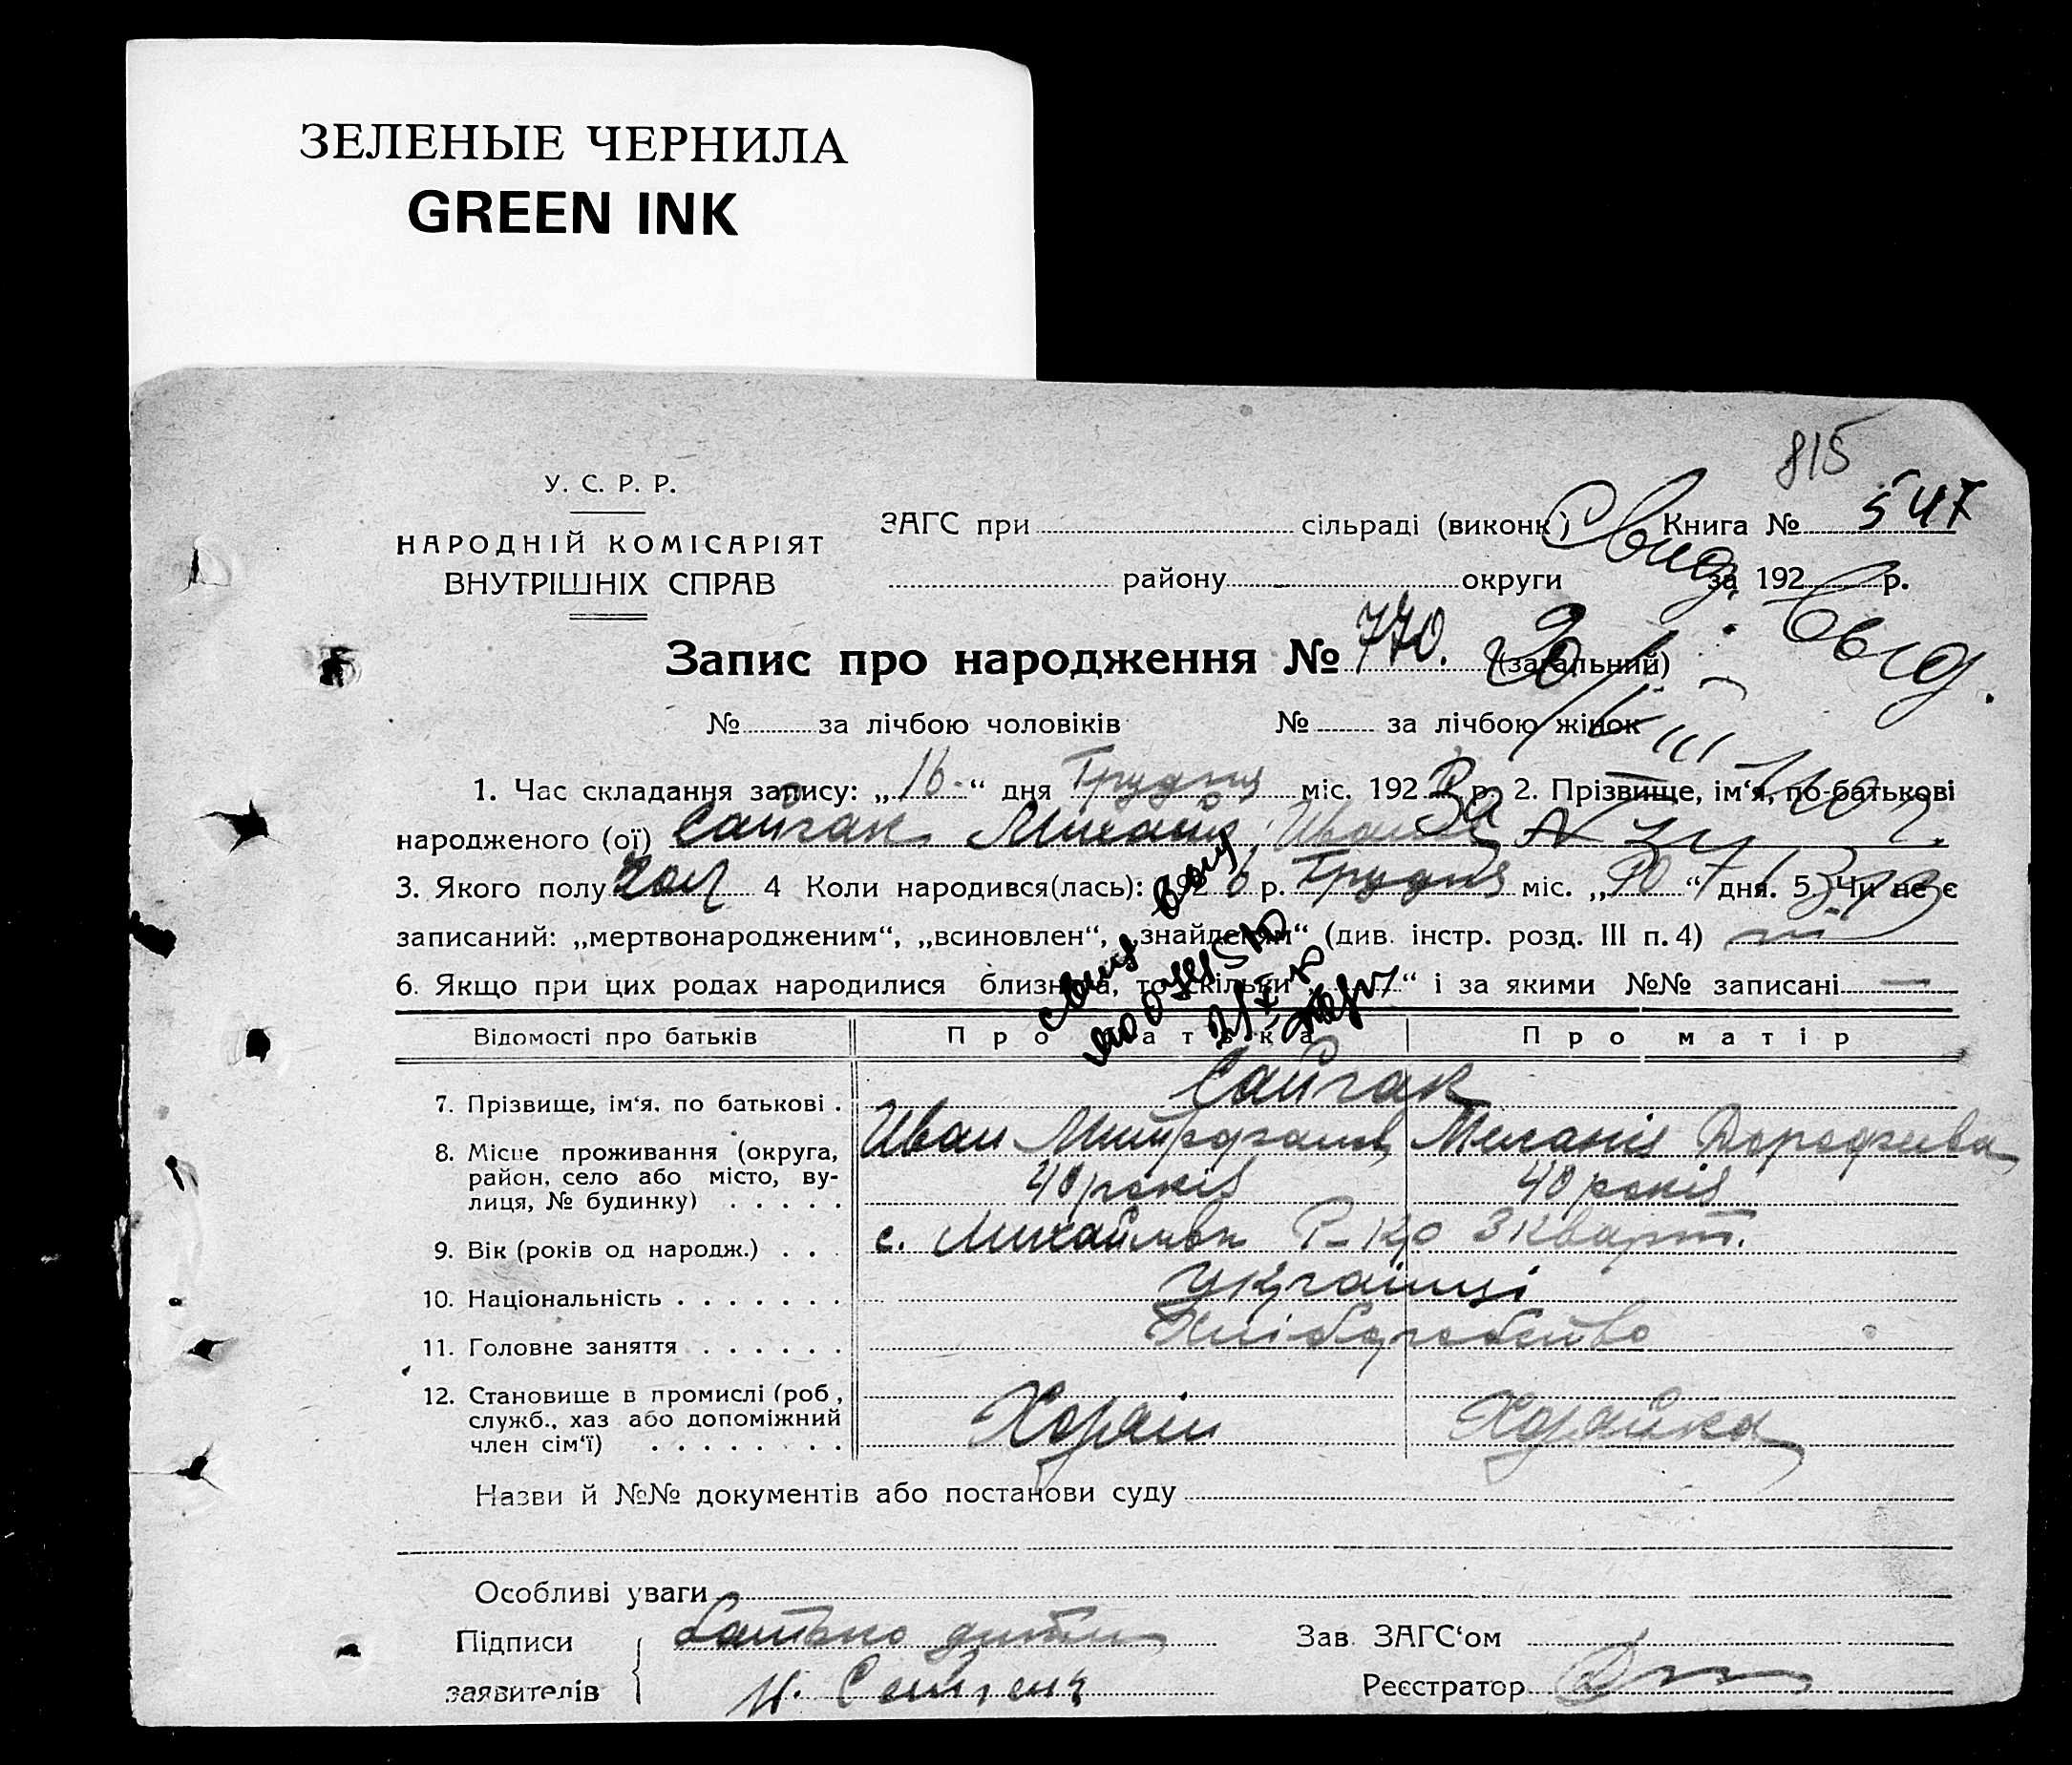 ЗЕЛЕНЫЕ ЧЕРНИЛА
GREEN INK
815
У. С. Р. Р.
НАРОДНІЙ КОМІСАРІЯТ
ВНУТРІШНІХ СПРАВ
ЗАГС при сільраді (виконк) Книга № 547
району округи за 192 р.
Свид.
Свид.
Запис про народження № 770. (загальний)
№ за лічбою чоловіків № за лічбою жінок
1. Час складання запису: „16“ дня Грудня міс. 192 р. 2. Прізвище, ім‘я, по-батькові
народженого (ої) Сайгак Михайло Иванов
3. Якого полу чол 4 Коли народився(лась): 192 6 р. Грудня міс. „ “ дня. 5. Чи не є
записаний: „мертвонародженим“, „всиновлен“, „знайденим“ (див. інстр. розд. III п. 4)
6. Якщо при цих родах народилися близнята, то скільки „ “ і за якими №№ записані —
Відомості про батьків Про батька Про матір
7. Прізвище, ім‘я, по батькові . Сайгак
8. Місце проживання (округа, район, село або місто, вулиця, № будинку) . . . . . Иван Митрофанов Меланія Дорофеева
40 років 40 років
9. Вік (років од народж.) . . . с. Михайлівки Р-на 3 кварт.
10. Національність . . . . . . . Українці
11. Головне заняття . . . . . . Хліборобство
12. Становище в промислі (роб., служб., хаз або допоміжний член сім‘ї) . . . . . . . . Хозяїн Хозяйка
Назви й №№ документів або постанови суду
Особливі уваги
Підписи заявителів { батько дитини
И. Сайгак
Зав. ЗАГС‘ом
Реєстратор